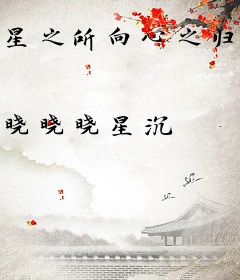 星之所向心之归
晓晓晓星沉